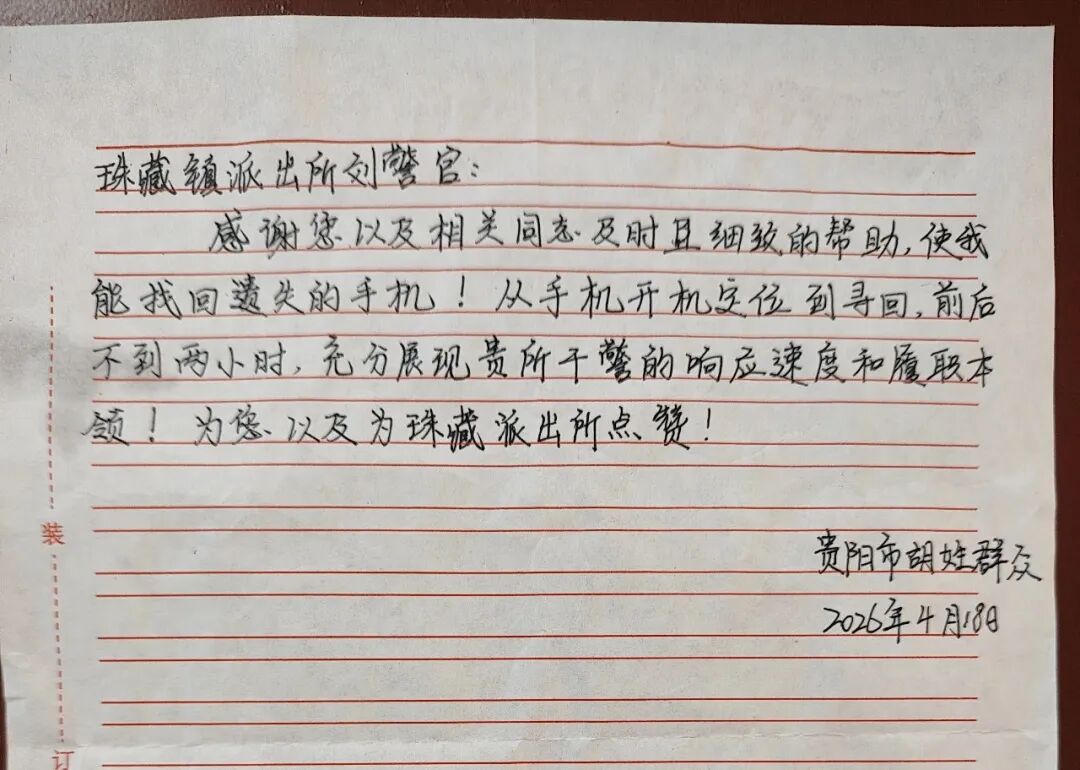 珠藏镇派出所刘警官：
感谢您以及相关同志及时且细致的帮助，使我
能找回遗失的手机！从手机开机定位到寻回，前后
不到两小时，充分展现贵所干警的响应速度和履职本
领！为您以及为珠藏派出所点赞！
贵阳市胡姓群众
2026年4月18日
装
订